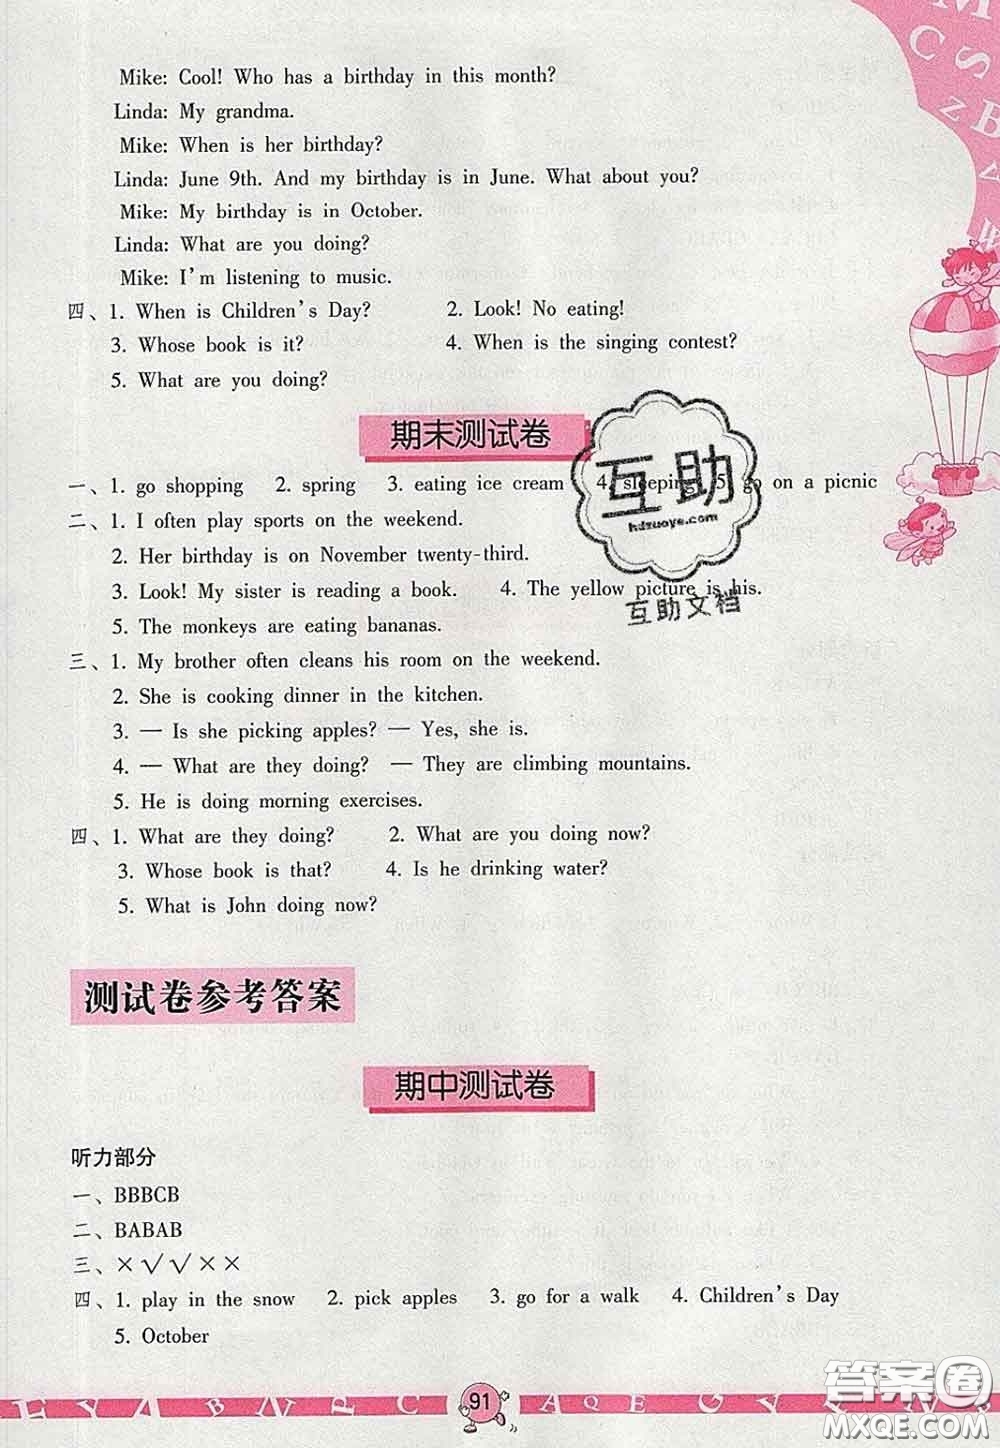 Mike: Cool! Who has a birthday in this month?
Linda: My grandma.
Mike: When is her birthday?
Linda: June 9th. And my birthday is in June. What about you?
Mike: My birthday is in October.
Linda: What are you doing?
Mike: I'm listening to music.
四、1. When is Children's Day? 2. Look! No eating!
3. Whose book is it? 4. When is the singing contest?
5. What are you doing?
期末测试卷
一、1. go shopping 2. spring 3. eating ice cream 4. sleeping 5. go on a picnic
二、1. I often play sports on the weekend.
2. Her birthday is on November twenty-third.
3. Look! My sister is reading a book. 4. The yellow picture is his.
5. The monkeys are eating bananas.
三、1. My brother often cleans his room on the weekend.
2. She is cooking dinner in the kitchen.
3. — Is she picking apples? — Yes, she is.
4. — What are they doing? — They are climbing mountains.
5. He is doing morning exercises.
四、1. What are they doing? 2. What are you doing now?
3. Whose book is that? 4. Is he drinking water?
5. What is John doing now?
测试卷参考答案
期中测试卷
听力部分
一、BBBCB
二、BABAB
三、×√√××
四、1. play in the snow 2. pick apples 3. go for a walk 4. Children's Day
5. October
91
互助
hdzuoye.com
互助文档
答案圈
MXQE.COM